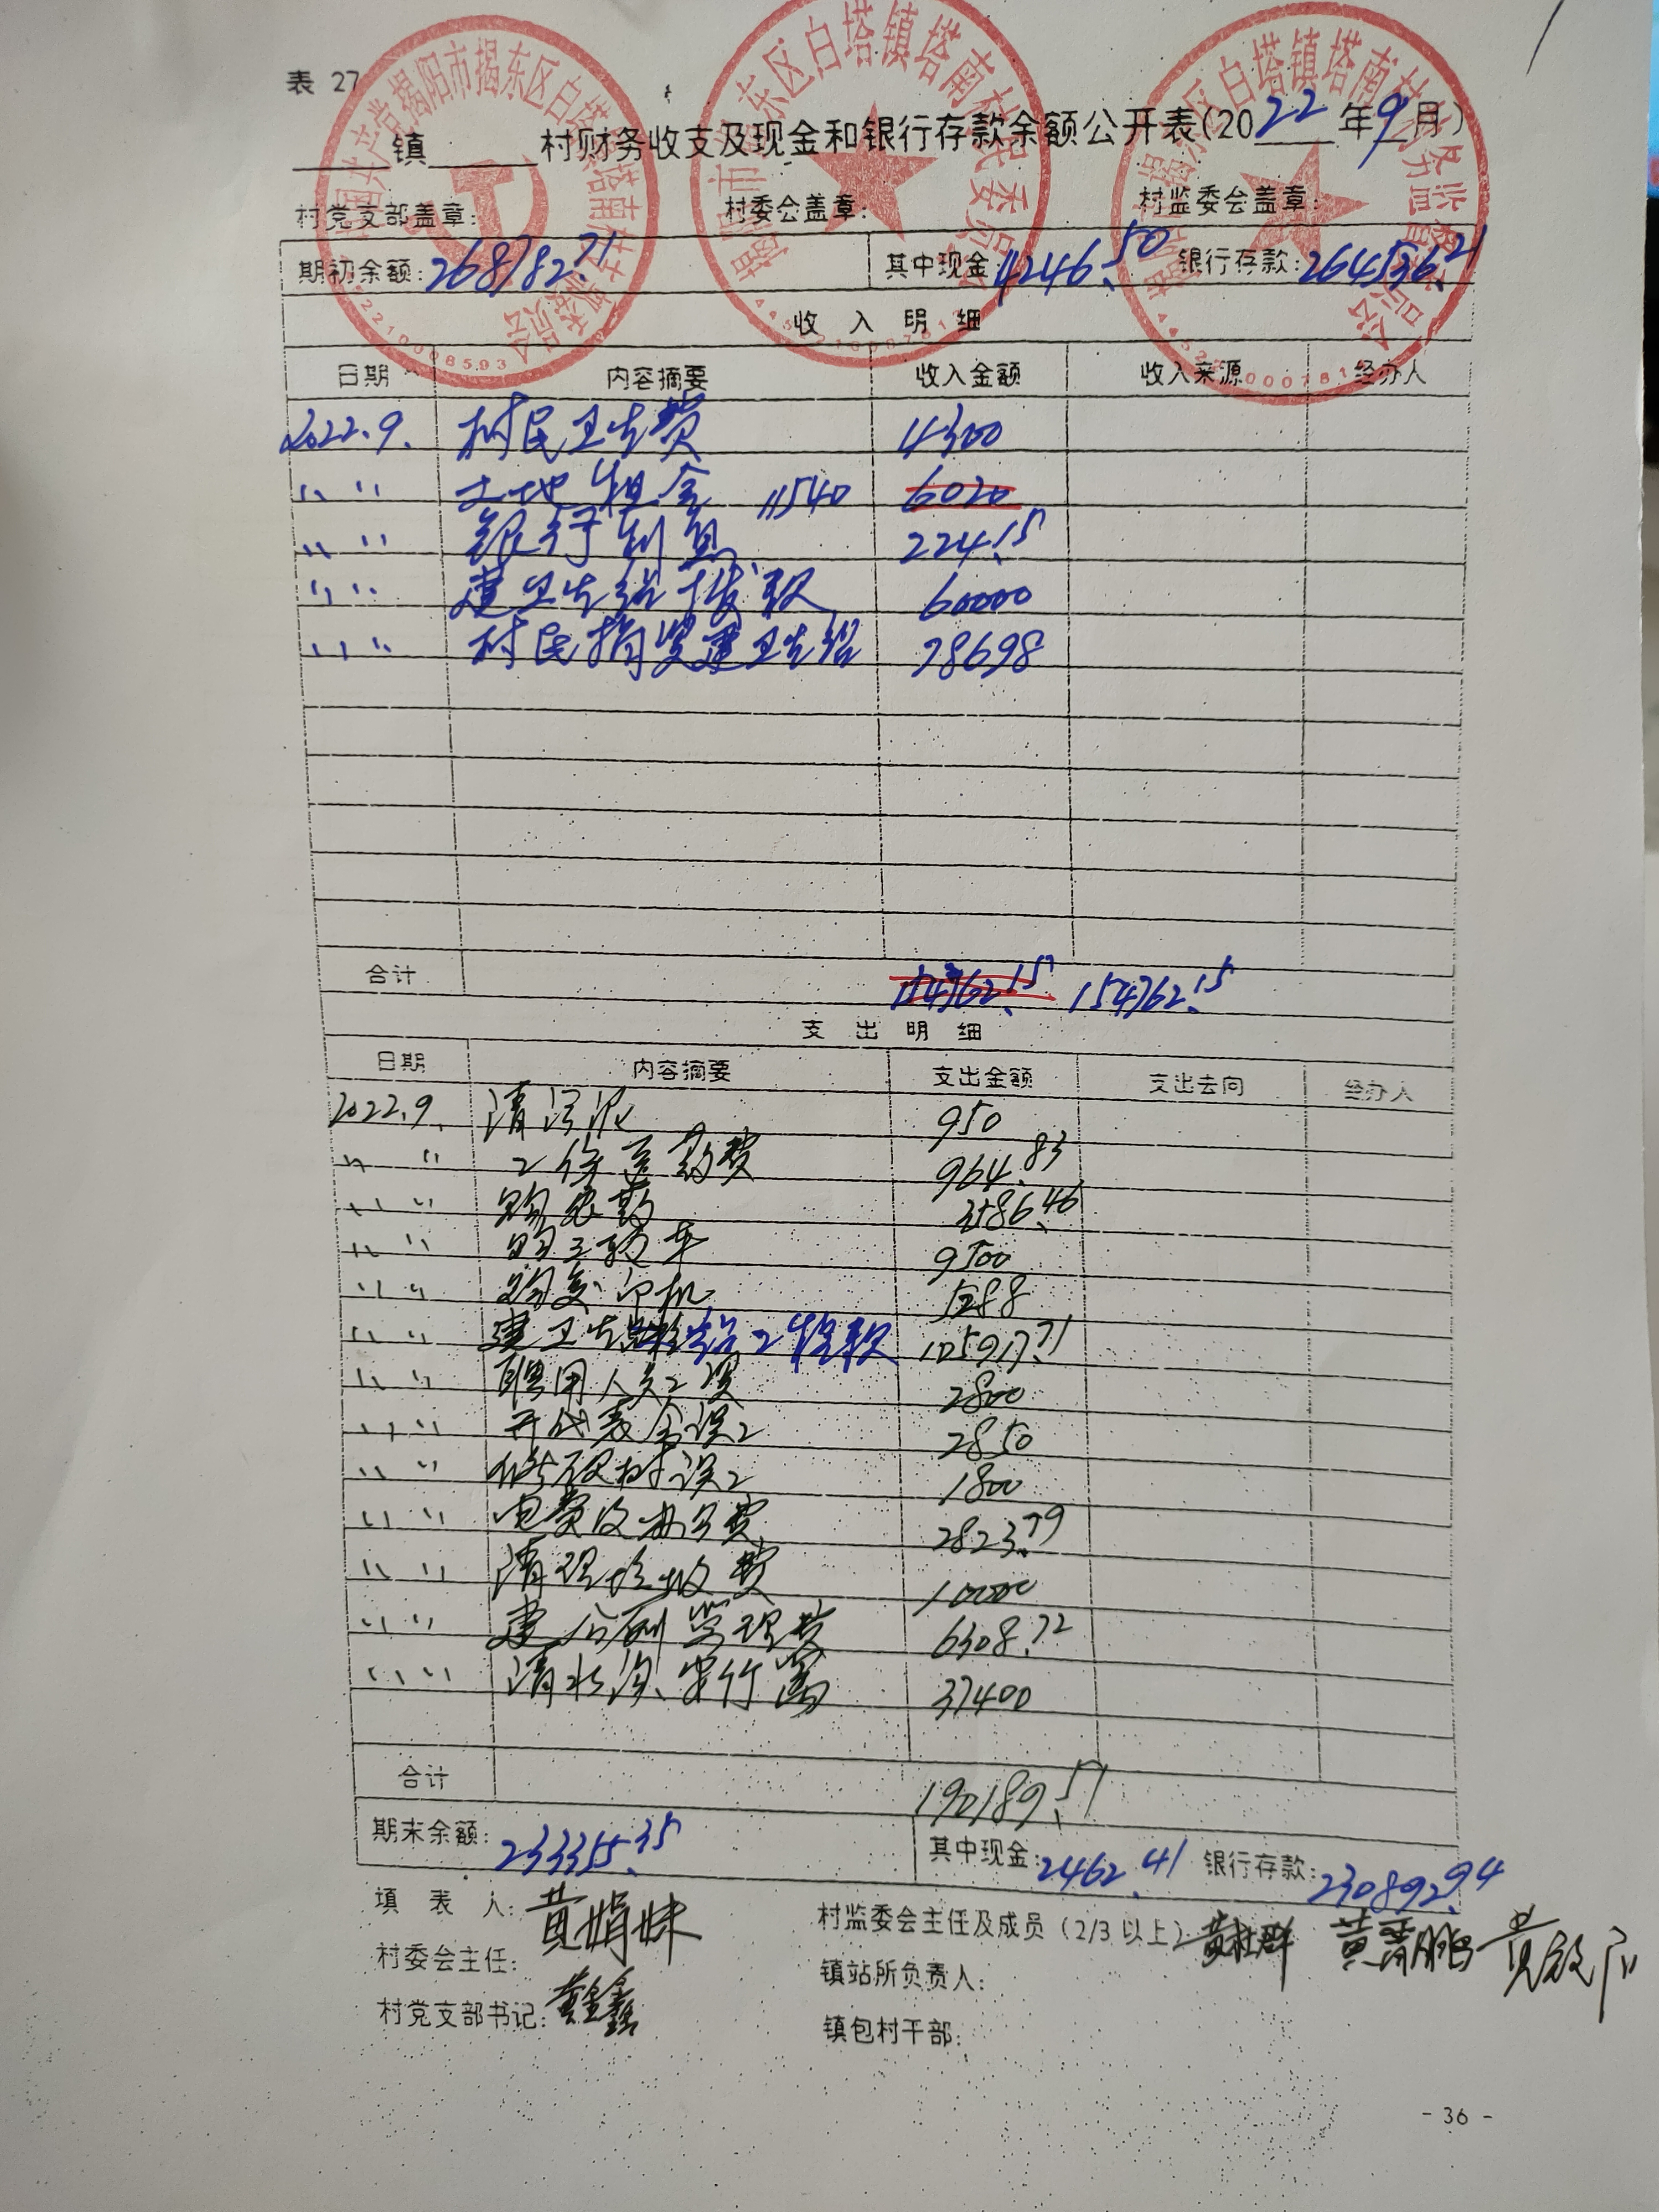 表 27
中国共产党揭阳市揭东区白塔镇塔南村支部委员会
揭阳市揭东区白塔镇塔南村村民委员会
揭阳市揭东区白塔镇塔南村村务监督委员会
____镇____村财务收支及现金和银行存款余额公开表(2022年9月)
村党支部盖章: 村委会盖章: 村监委会盖章:
期初余额:268782.71 其中现金:4246.50 银行存款:264536.21
收 入 明 细
日期 内容摘要 收入金额 收入来源 经办人
2022.9. 村民卫生费 4300
〃 〃 土地租金 11540 6020
〃 〃 银行利息 224.15
〃 〃 建卫生站拨款 60000
〃 〃 村民捐资建卫生站 78698
合计 154762.15 154762.15
支 出 明 细
日期 内容摘要 支出金额 支出去向 经办人
2022.9. 清污泥 950
〃 〃 工伤医药费 964.83
〃 〃 购农药 3586.46
〃 〃 购三轮车 9500
〃 〃 购复印机 5288
〃 〃 建卫生站工程款 105917.71
〃 〃 聘用人员工资 2800
〃 〃 开代表会误工 2850
〃 〃 误工 1800
〃 〃 电费及办公费 2823.79
〃 〃 清理垃圾费 10000
〃 〃 建公厕监理费 6308.72
〃 〃 清水沟、竹 37400
合计 190189.51
期末余额:233355.35 其中现金:2462.41 银行存款:230892.94
填 表 人:黄娟妹 村监委会主任及成员(2/3以上) 黄杜群 黄 黄
村委会主任: 镇站所负责人:
村党支部书记:黄金鑫 镇包村干部:
- 36 -